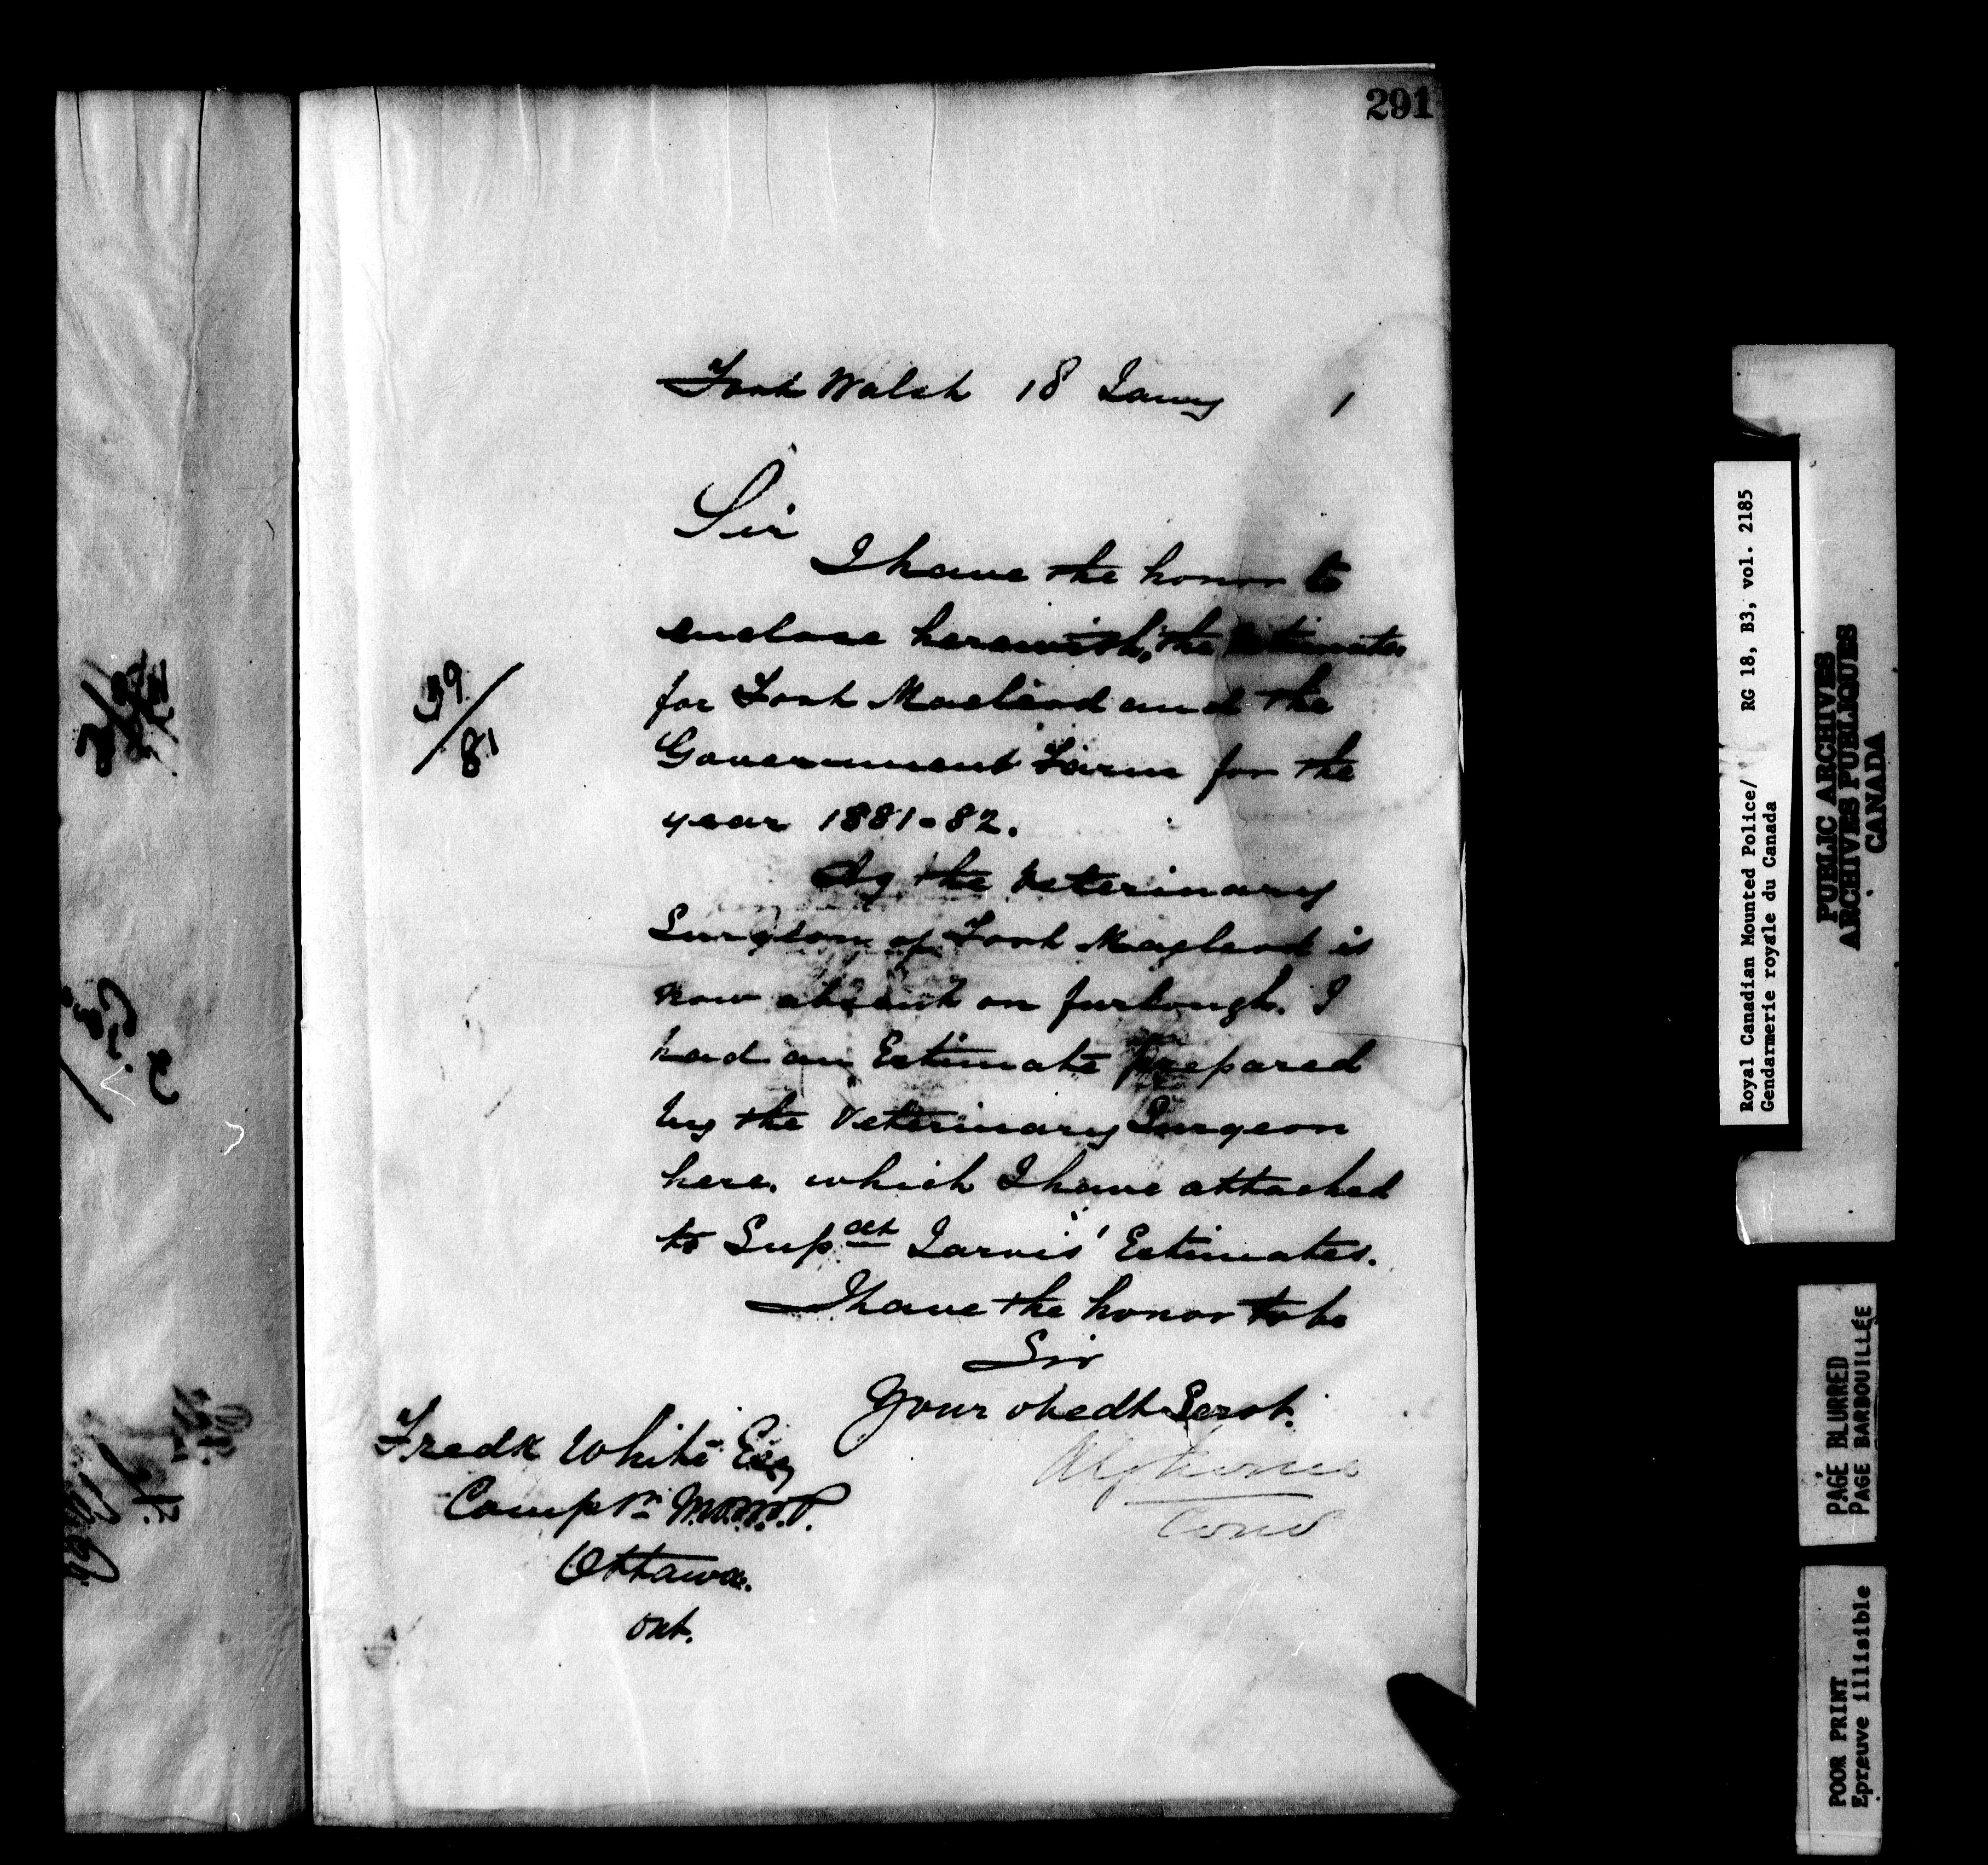 291
Fort Walsh 18 Jany 1
Sir
I have the honor to
enclose herewith, the Estimates
for Fort Macleod and the
39/81
Government Farm for the
year 1881-82.
As the Veterinary
Surgeon of Fort Macleod is
now absent on furlough. I
had an Estimate prepared
by the Veterinary Surgeon
here, which I have attached
to Supdt Jarvis' Estimates.
I have the honor to be
Sir
Your obedt Servt.
Fredk White Esq
Comptr N.W.M.P.
Ottawa.
Ont.
Royal Canadian Mounted Police/ RG 18, B3, vol. 2185
Gendarmerie royale du Canada
PUBLIC ARCHIVES
ARCHIVES PUBLIQUES
CANADA
PAGE BLURRED
PAGE BARBOUILLÉE
POOR PRINT
Epreuve illisible